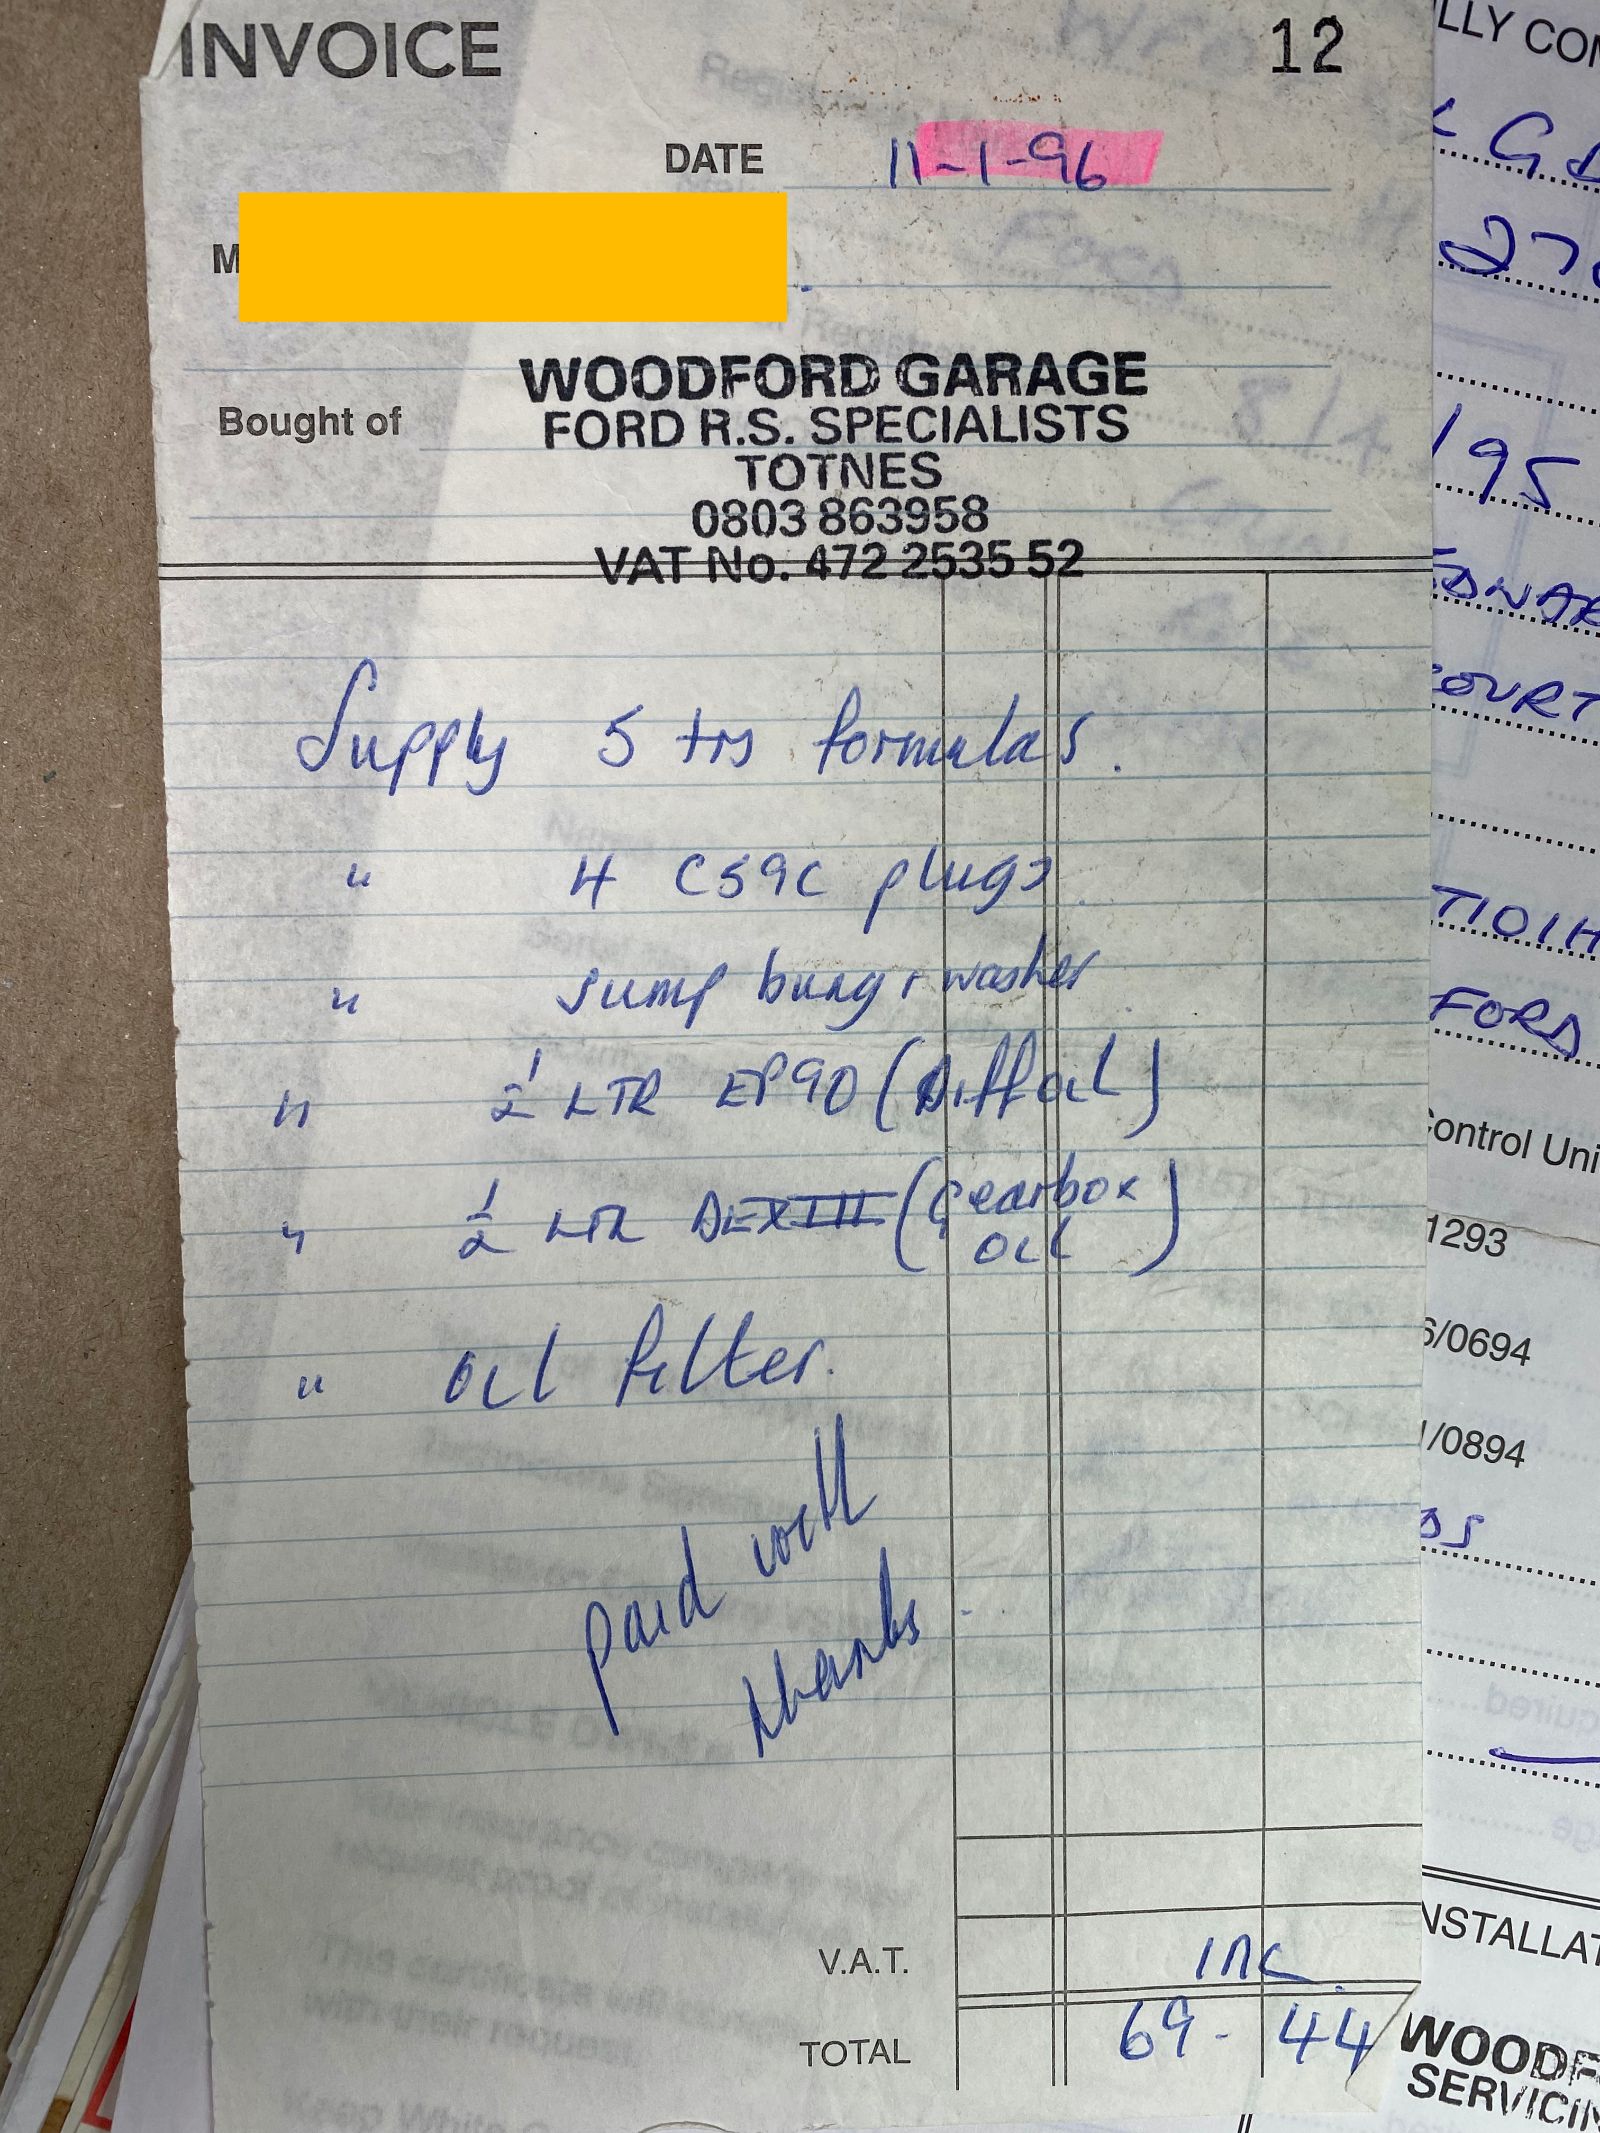 INVOICE 12
DATE 11-1-96
M
WOODFORD GARAGE
Bought of FORD R.S. SPECIALISTS
TOTNES
0803 863958
VAT No. 472 2535 52
Supply 5 trs formula S.
" 4 C59C plugs
" sump bung + washer
" 1/2 LTR EP90 (Diff oil)
" 1/2 LTR DEXIII (Gearbox
oil)
" oil filter.
paid with
thanks
V.A.T. inc
TOTAL 69 - 44
LLY CO
GD
27
/95
EDWAR
COURT
FORD
Control Uni
1293
6/0694
1/0894
NSTALLAT
WOODF
SERVICIN